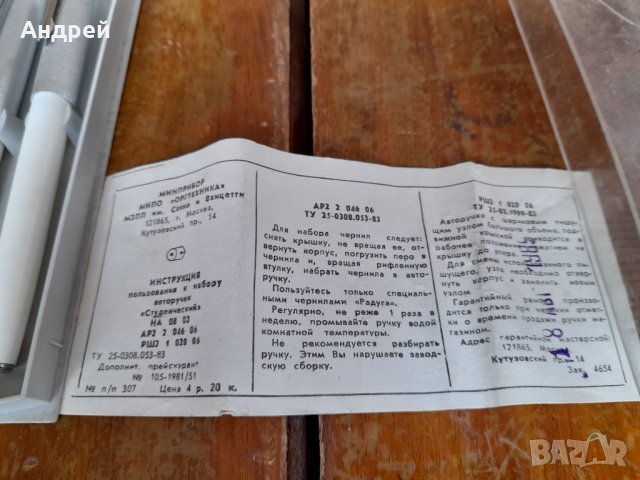 Андрей
МИНПРИБОР
МНПО «ОРГТЕХНИКА»
МЗПП им. Сакко и Ванцетти
121865, г. Москва,
Кутузовский пр., 14
ИНСТРУКЦИЯ
пользования к набору
авторучек
«Студенческий»
НА 08 02
АР2 2 046 06
РШ2 1 020 06
ТУ 25-0308.053-83
Дополнит. прейскурант
№ 105-1981/51
№ п/п 307 Цена 4 р. 20 к.
АР2 2 046 06
ТУ 25-0308.053-83
Для набора чернил следует:
снять крышку, не вращая ее, от-
вернуть корпус, погрузить перо в
чернила и, вращая рифленную
втулку, набрать чернила в авто-
ручку.
Пользуйтесь только специаль-
ными чернилами «Радуга».
Регулярно, не реже 1 раза в
неделю, промывайте ручку водой
комнатной температуры.
Не рекомендуется разбирать
ручку. Этим Вы нарушаете завод-
скую сборку.
РШ2 1 020 06
ТУ 25-03.1999-83
Авторучка с шариковым пишу-
щим узлом большого объема, под-
вижной крышкой приводится в
рабочее положение
крышку до упора.
Для смены использованного пи-
шущего узла необходимо отвер-
нуть корпус и заменить новым
узлом.
Гарантийный ремонт произво-
дится только при наличии отмет-
ки о времени продажи ручки ма-
газином.
Адрес гарантийной мастерской:
121865, Москва,
Кутузовский пр., 14
Зак. 4654
BAZAR